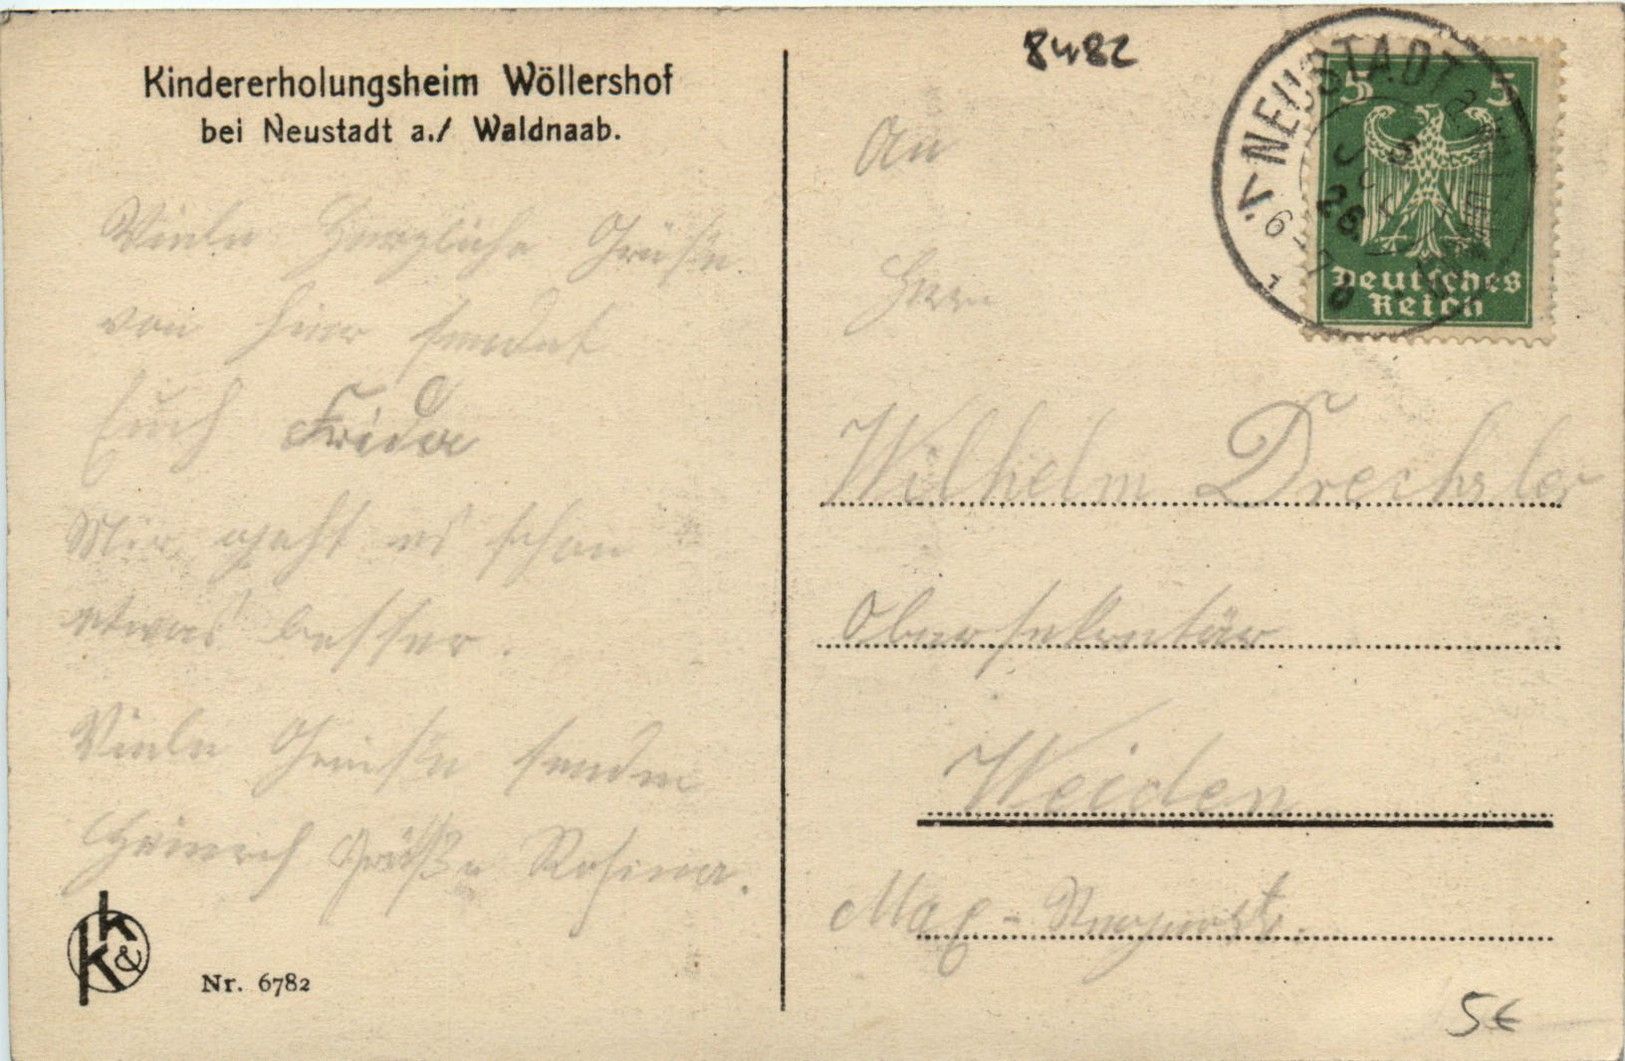 Kindererholungsheim Wöllershof
bei Neustadt a./ Waldnaab.
Viele herzliche Grüße
von hier sendet
Euch Frida
Mir geht es schon
etwas besser.
Viele Grüße senden
Heinrich Grüße Rosina.
k & k
Nr. 6782
8482
NEUSTADT
26
5 5
Deutsches
Reich
An
Herrn
Wilhelm Drechsler
Obersekretär
Weiden
Max-
5€